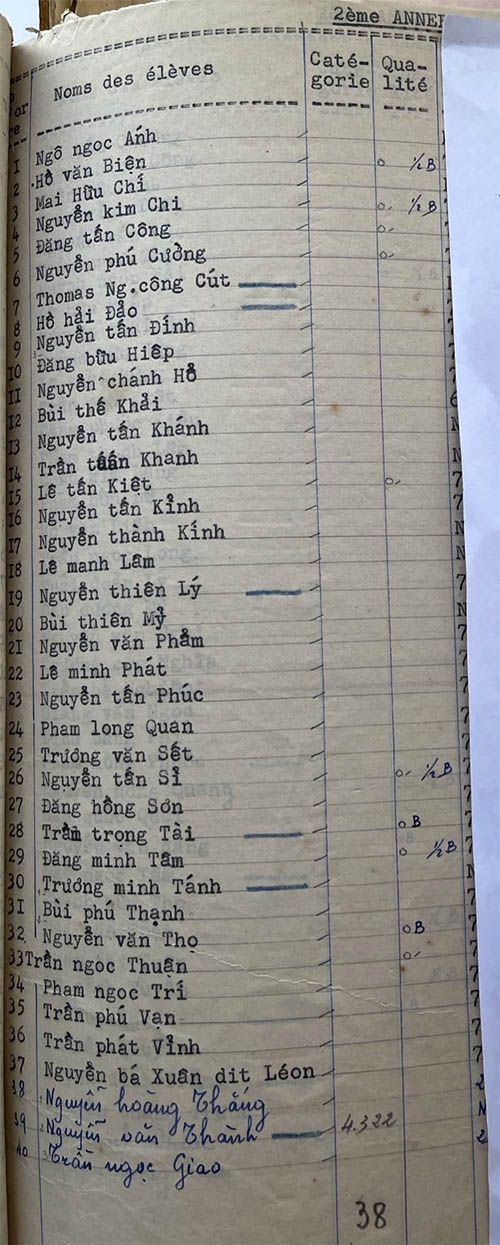 2ème ANNEE
Noms des élèves Caté- Qua-
gorie lité
1 Ngô ngoc Ánh
2 Hồ văn Biện o ½ B
3 Mai Hữu Chí
4 Nguyễn kim Chi o, ½ B
5 Đăng tấn Công o,
6 Nguyễn phú Cường o,
7 Thomas Ng.công Cút
8 Hồ hải Đảo
9 Nguyễn tấn Đính
10 Đăng bữu Hiêp
11 Nguyễn chánh Hổ
12 Bùi thế Khải
13 Nguyễn tấn Khánh
14 Trần tấn Khanh
15 Lê tấn Kiệt o,
16 Nguyễn tấn Kỉnh
17 Nguyễn thành Kính
18 Lê manh Lâm
19 Nguyễn thiên Lý
20 Bùi thiên Mỷ
21 Nguyễn văn Phẩm
22 Lê minh Phát
23 Nguyễn tấn Phúc
24 Pham long Quan
25 Trướng văn Sết
26 Nguyễn tấn Sỉ o, ½ B
27 Đăng hồng Sơn
28 Trầm trọng Tài o B
29 Đăng minh Tâm o ½ B
30 Trướng minh Tánh
31 Bùi phú Thạnh
32 Nguyễn văn Thọ o B
33 Trần ngọc Thuận o,
34 Pham ngọc Trí
35 Trần phú Vạn
36 Trần phát Vỉnh
37 Nguyễn bá Xuân dit Léon
38 Nguyễn hoàng Thắng
39 Nguyễn văn Thành 4.322
40 Trần ngọc Giao
38